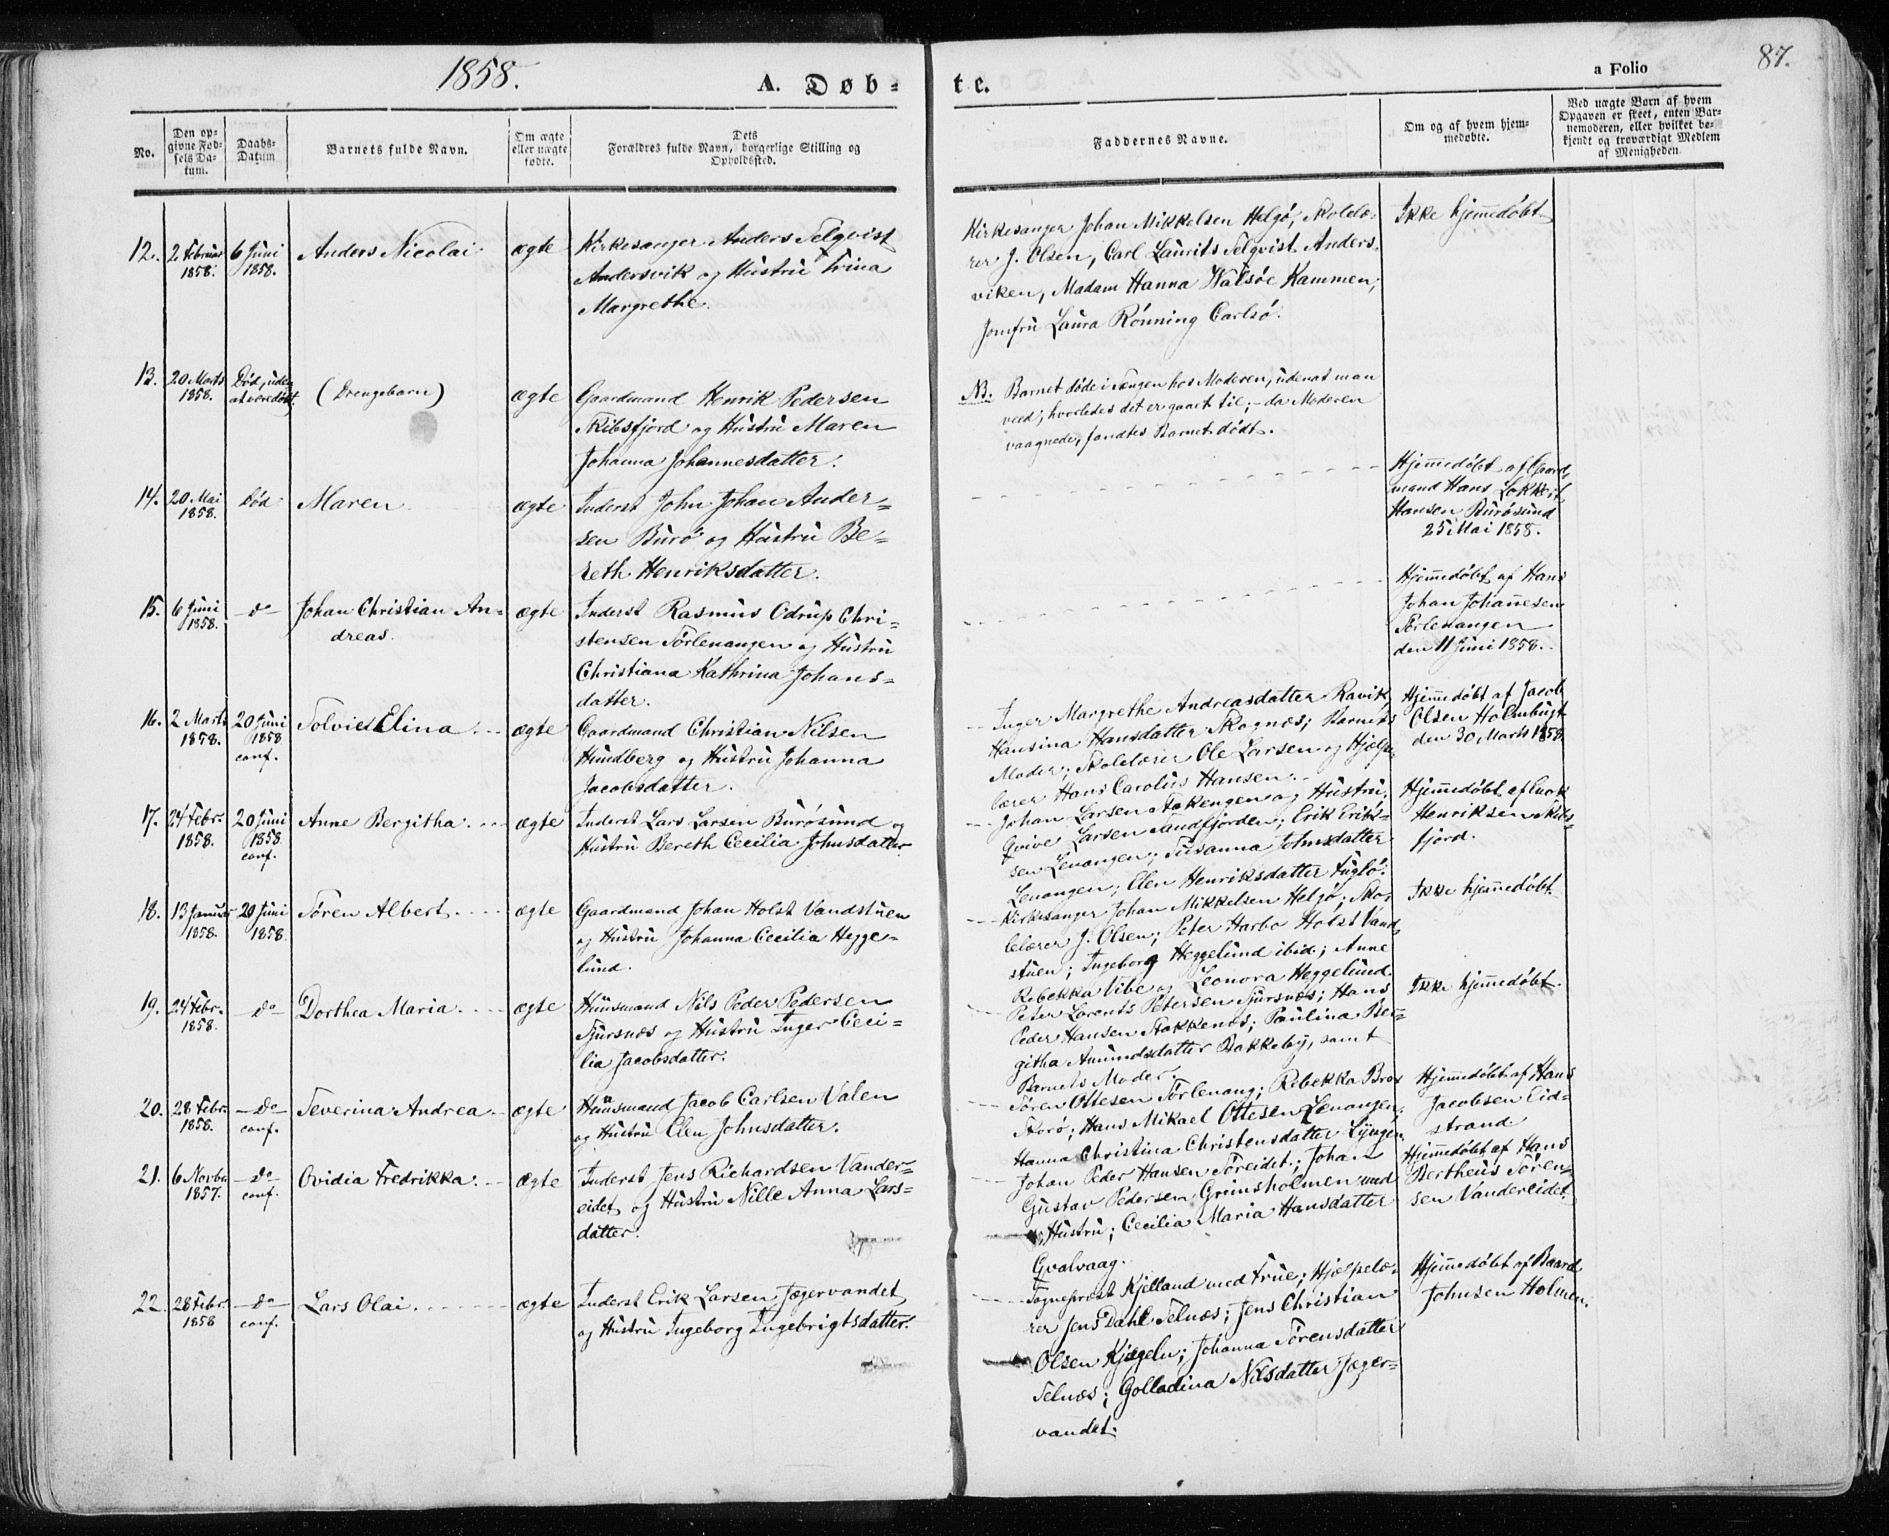 1858.
A. Døb-
te.
a Folio
87.
No.
Den op-
givne Fød-
sels Da-
tum.
Daabs-
Datum
Barnets fulde Navn.
Om ægte
eller uægte
fødte.
Dets
Forældres fulde Navn, borgerlige Stilling og
Opholdssted.
Faddernes Navne.
Om og af hvem hjem-
medøbte.
Ved uægte Børn af hvem
Opgaven er skeet, enten Bar-
nemoderen, eller hvilket be-
kjendt og troværdigt Medlem
af Menigheden.
12.
2 Februar
1858.
6 Juni
1858.
Anders Nicolai
ægte
Kirkesanger Anders Selqvist
Andersvik og Hustru Trina
Margrethe.
Kirkesanger Johan Mikkelsen Helgø, Skolelæ-
rer J. Olsen, Carl Laurits Selqvist Anders-
viken, Madam Hanna Walsøe Kammen,
Jomfru Laura Rønning Carlsø.
Ikke hjemmedøbt
13.
20 Marts
1858.
Død, uden
at være døbt.
(Drengebarn)
ægte
Gaardmand Henrik Pedersen
Skibsfjord og Hustru Maren
Johanna Johannesdatter.
NB. Barnet døde i Sengen hos Moderen, uden at man
veed, hvorledes det er gaaet til; - da Moderen
vaagnede, fandtes Barnet dødt.
14.
20 Mai
1858.
Død
Maren
ægte
Inderst John Johan Ander-
sen Burø og Hustru Be-
reth Henriksdatter.
Hjemmedøbt af Gaard-
mand Hans Lokkit
Hansen Burøsund
25 Mai 1858.
15.
6 Juni
1858.
do
Johan Christian An-
dreas.
ægte
Inderst Rasmus Odrup Chri-
stensen Sørlenangen og Hustru
Christiana Kathrina Johans-
datter.
Hjemmedøbt af Hans
Johan Johannesen
Sørlenangen
den 11 Juni 1858.
16.
2 Marts
1858.
20 Juni
1858
conf.
Solvie Elina
ægte
Gaardmand Christian Nilsen
Hundberg og Hustru Johanna
Jacobsdatter.
Inger Margrethe Andreasdatter Ravik,
Hansina Hansdatter Skognæs; Barnets
Moder; Skolelærer Ole Larsen og Hjælpe-
lærer Hans Carolus Hansen.
Hjemmedøbt af Jacob
Olsen Holmbugt
den 30 Marts 1858.
17.
24 Febr.
1858.
20 Juni
1858
conf.
Anne Bergitha
ægte
Inderst Lars Larsen Burøsund og
Hustru Bereth Cecilia Johnsdatter
Johan Larsen Stakengen og Hustru,
Qvive Larsen Sandfjorden; Erik Erik-
sen Lenangen, Susanna Johnsdatter
Lenangen; Elen Henriksdatter Fuglø.
Hjemmedøbt af Enok
Henriksen Skibs-
fjord.
18.
13 Januar
1858.
20 Juni
1858.
Søren Albert
ægte
Gaardmand Johan Holst Vandstuen
og Hustru Johanna Cecilia Hegge-
lund.
Kirkesanger Johan Mikkelsen Helgø; Sko-
lelærer J. Olsen; Peter Harbo Holst Vand-
stuen; Ingeborg Heggelund ibid.; Anne
Rebekka Vibe og Leonora Heggelund.
Ikke hjemmedøbt
19.
24 Febr.
1858.
do
Dorthea Maria
ægte
Huusmand Nils Peder Pedersen
Sjursnæs og Hustru Inger Ceci-
lia Jacobsdatter.
Peter Lorents Petersen Sjursnæs; Hans
Peder Hansen Stakkenæs; Paulina Ber-
githa Amundsdatter Bakkeby, samt
Barnets Moder.
Ikke hjemmedøbt
20.
28 Febr.
1858.
do
conf.
Severina Andrea
ægte
Huusmand Jacob Carlsen Valen
og Hustru Elen Johnsdatter.
Søren Ottesen Sørlenang; Rebekka Brox
Skorø; Hans Mikael Ottesen Lenangen;
Hanna Christina Christensdatter Lyngen
Hjemmedøbt af Hans
Jacobsen Eid-
strand
21.
6 Novbr
1857.
do
conf.
Ovidia Fredrikka
ægte
Inderst Jens Richardsen Vander-
eidet og Hustru Nille Anna Lars-
datter.
Johan Peder Hansen Søreidet; Johan
Gustav Pedersen Grimsholmen med
Hustru; Cecilia Maria Hansdatter
Qvalvaag.
Hjemmedøbt af Hans
Bertheus Søren-
sen Vandereidet
22.
28 Febr.
1858
do
conf.
Lars Olai
ægte
Inderst Erik Larsen Jægervandet
og Hustru Ingeborg Ingebrigtsdatter.
Sogneprest Kjelland med Frue; Hjælpelæ-
rer Jens Dahl Selnæs; Jens Christian
Olsen Kjægeln; Johanna Sørensdatter
Selnæs; Golladina Nilsdatter Jæger-
vandet.
Hjemmedøbt af Baard
Johnsen Holmen.